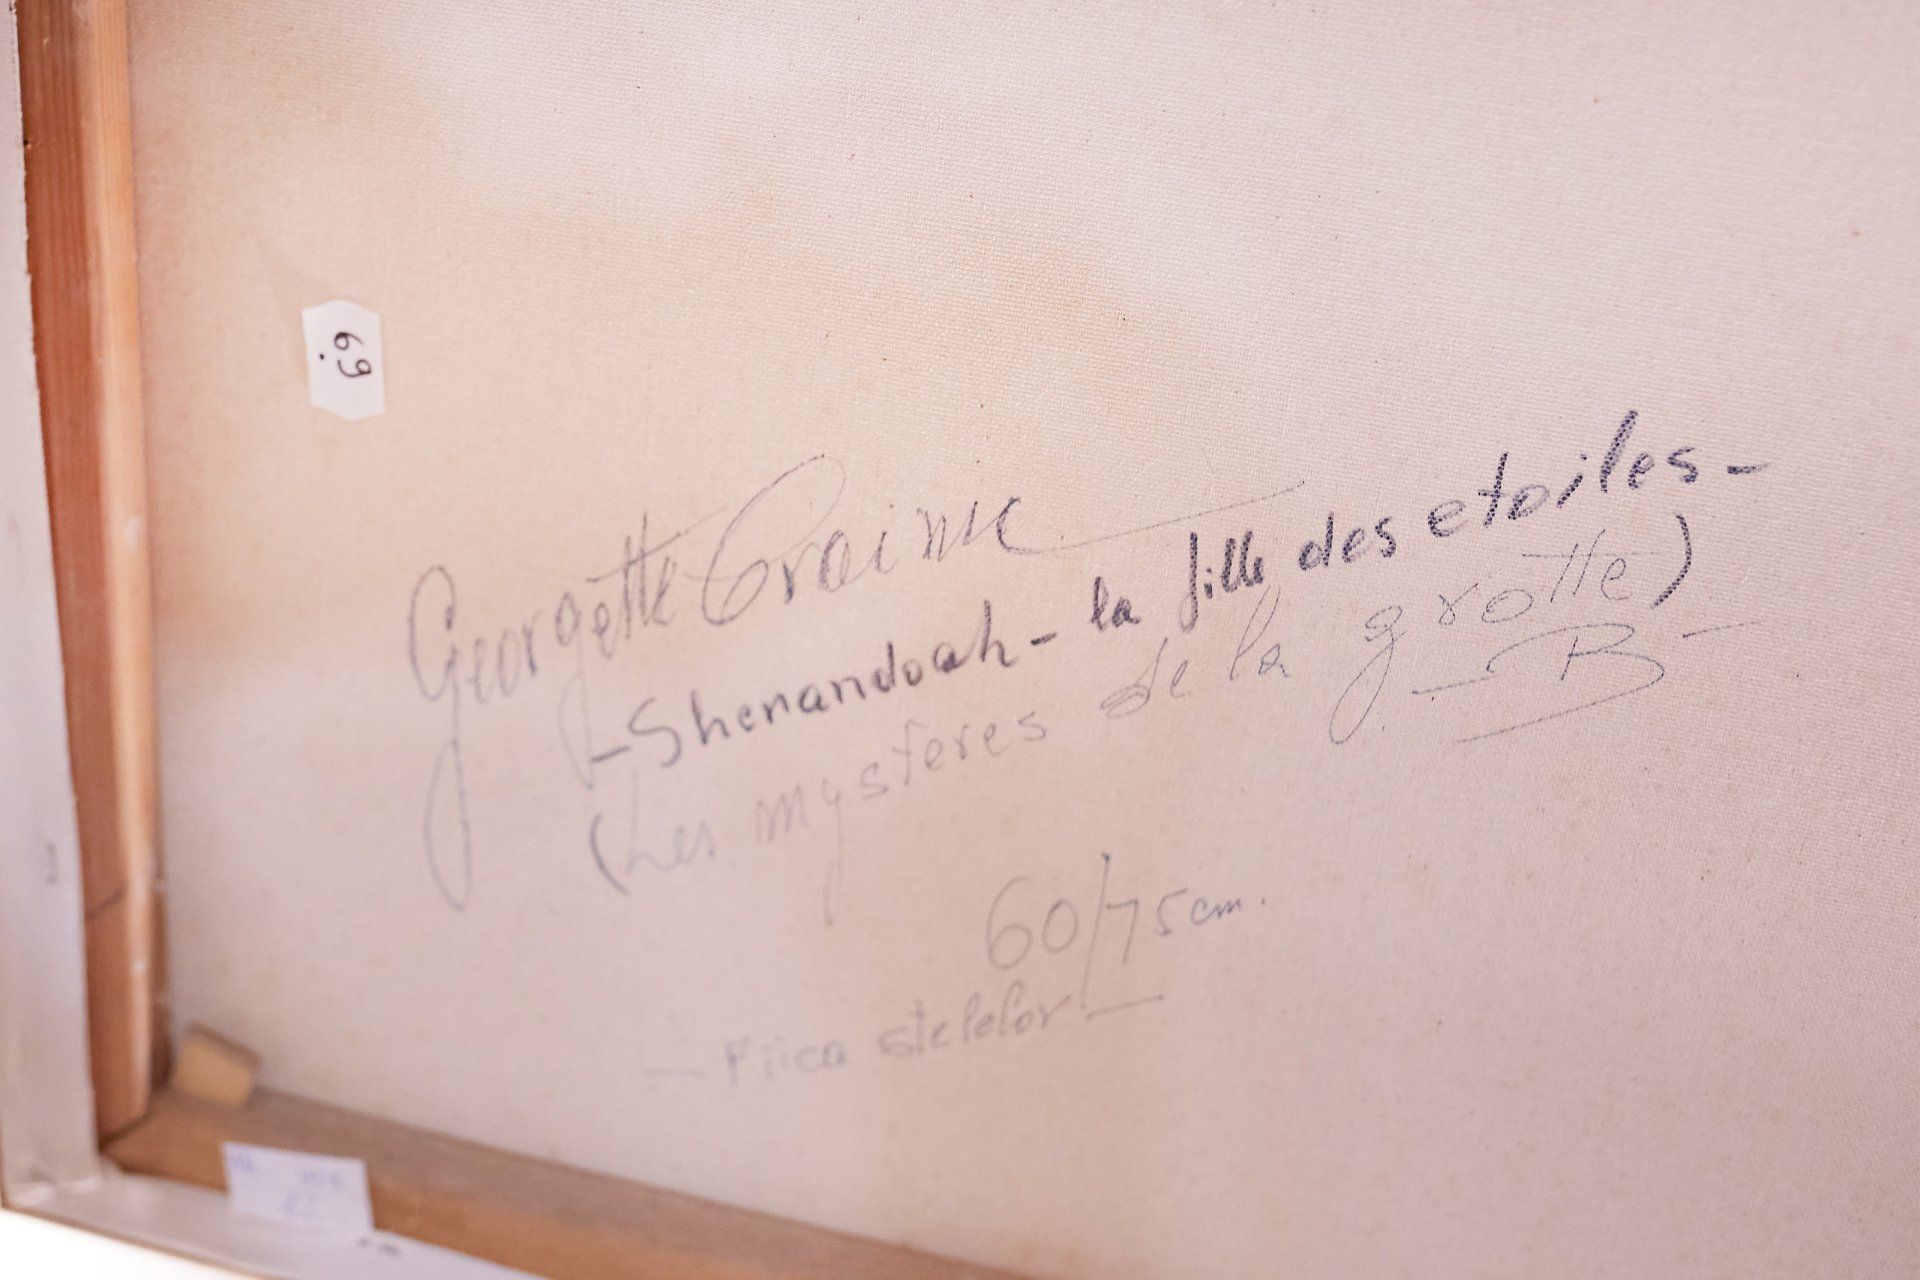 69.
Georgette Crainic
-Shenandoah- la fille des etoiles-
(Les mystères de la grotte)
-B-
60/75 cm.
- Fiica stelelor -